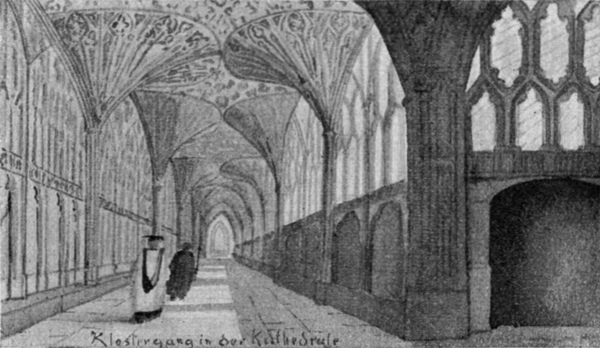 Klostergang in der Kathedrale